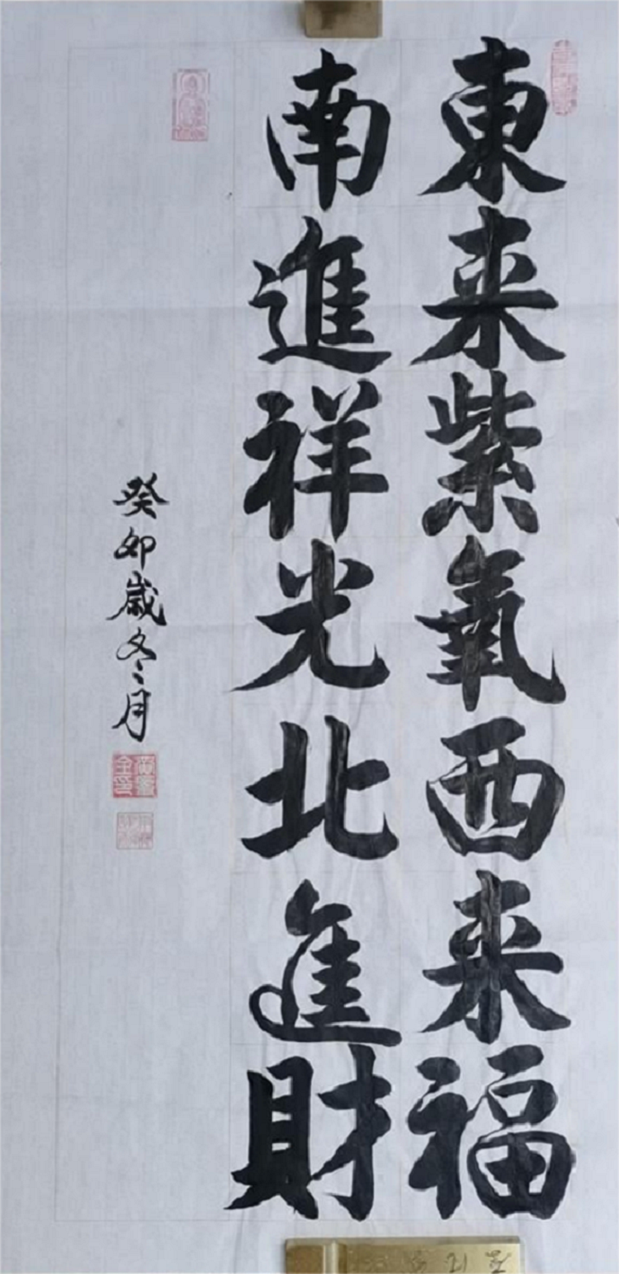 東来紫氣西来福
南進祥光北進財
癸卯歲冬月